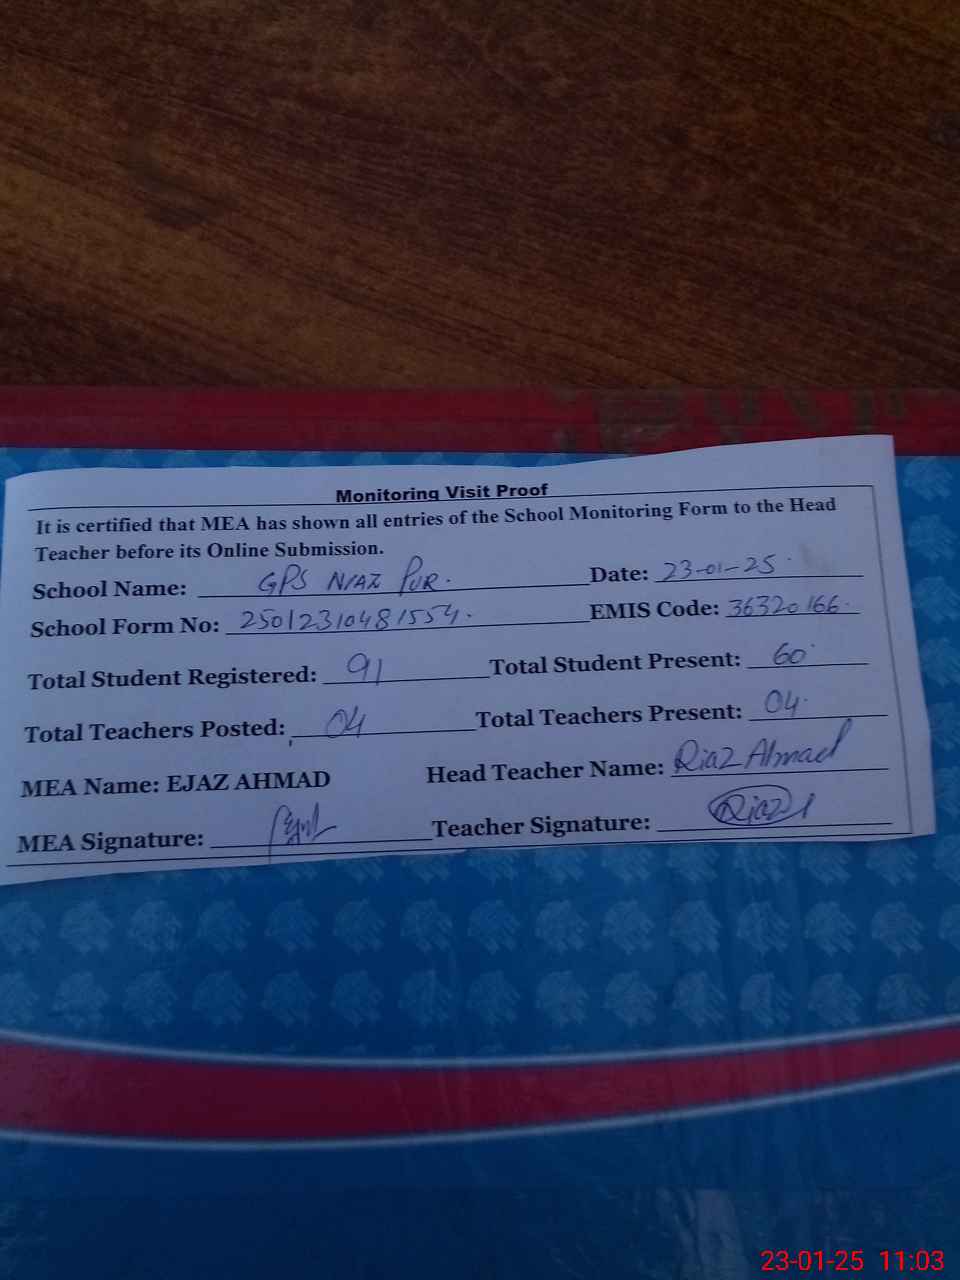 Monitoring Visit Proof
It is certified that MEA has shown all entries of the School Monitoring Form to the Head
Teacher before its Online Submission.
School Name: GPS NIAZ PUR. Date: 23-01-25
School Form No: 25012310481554. EMIS Code: 36320166.
Total Student Registered: 91 Total Student Present: 60
Total Teachers Posted: 04 Total Teachers Present: 04.
MEA Name: EJAZ AHMAD Head Teacher Name: Riaz Ahmad
MEA Signature: Teacher Signature: Riaz
23-01-25 11:03